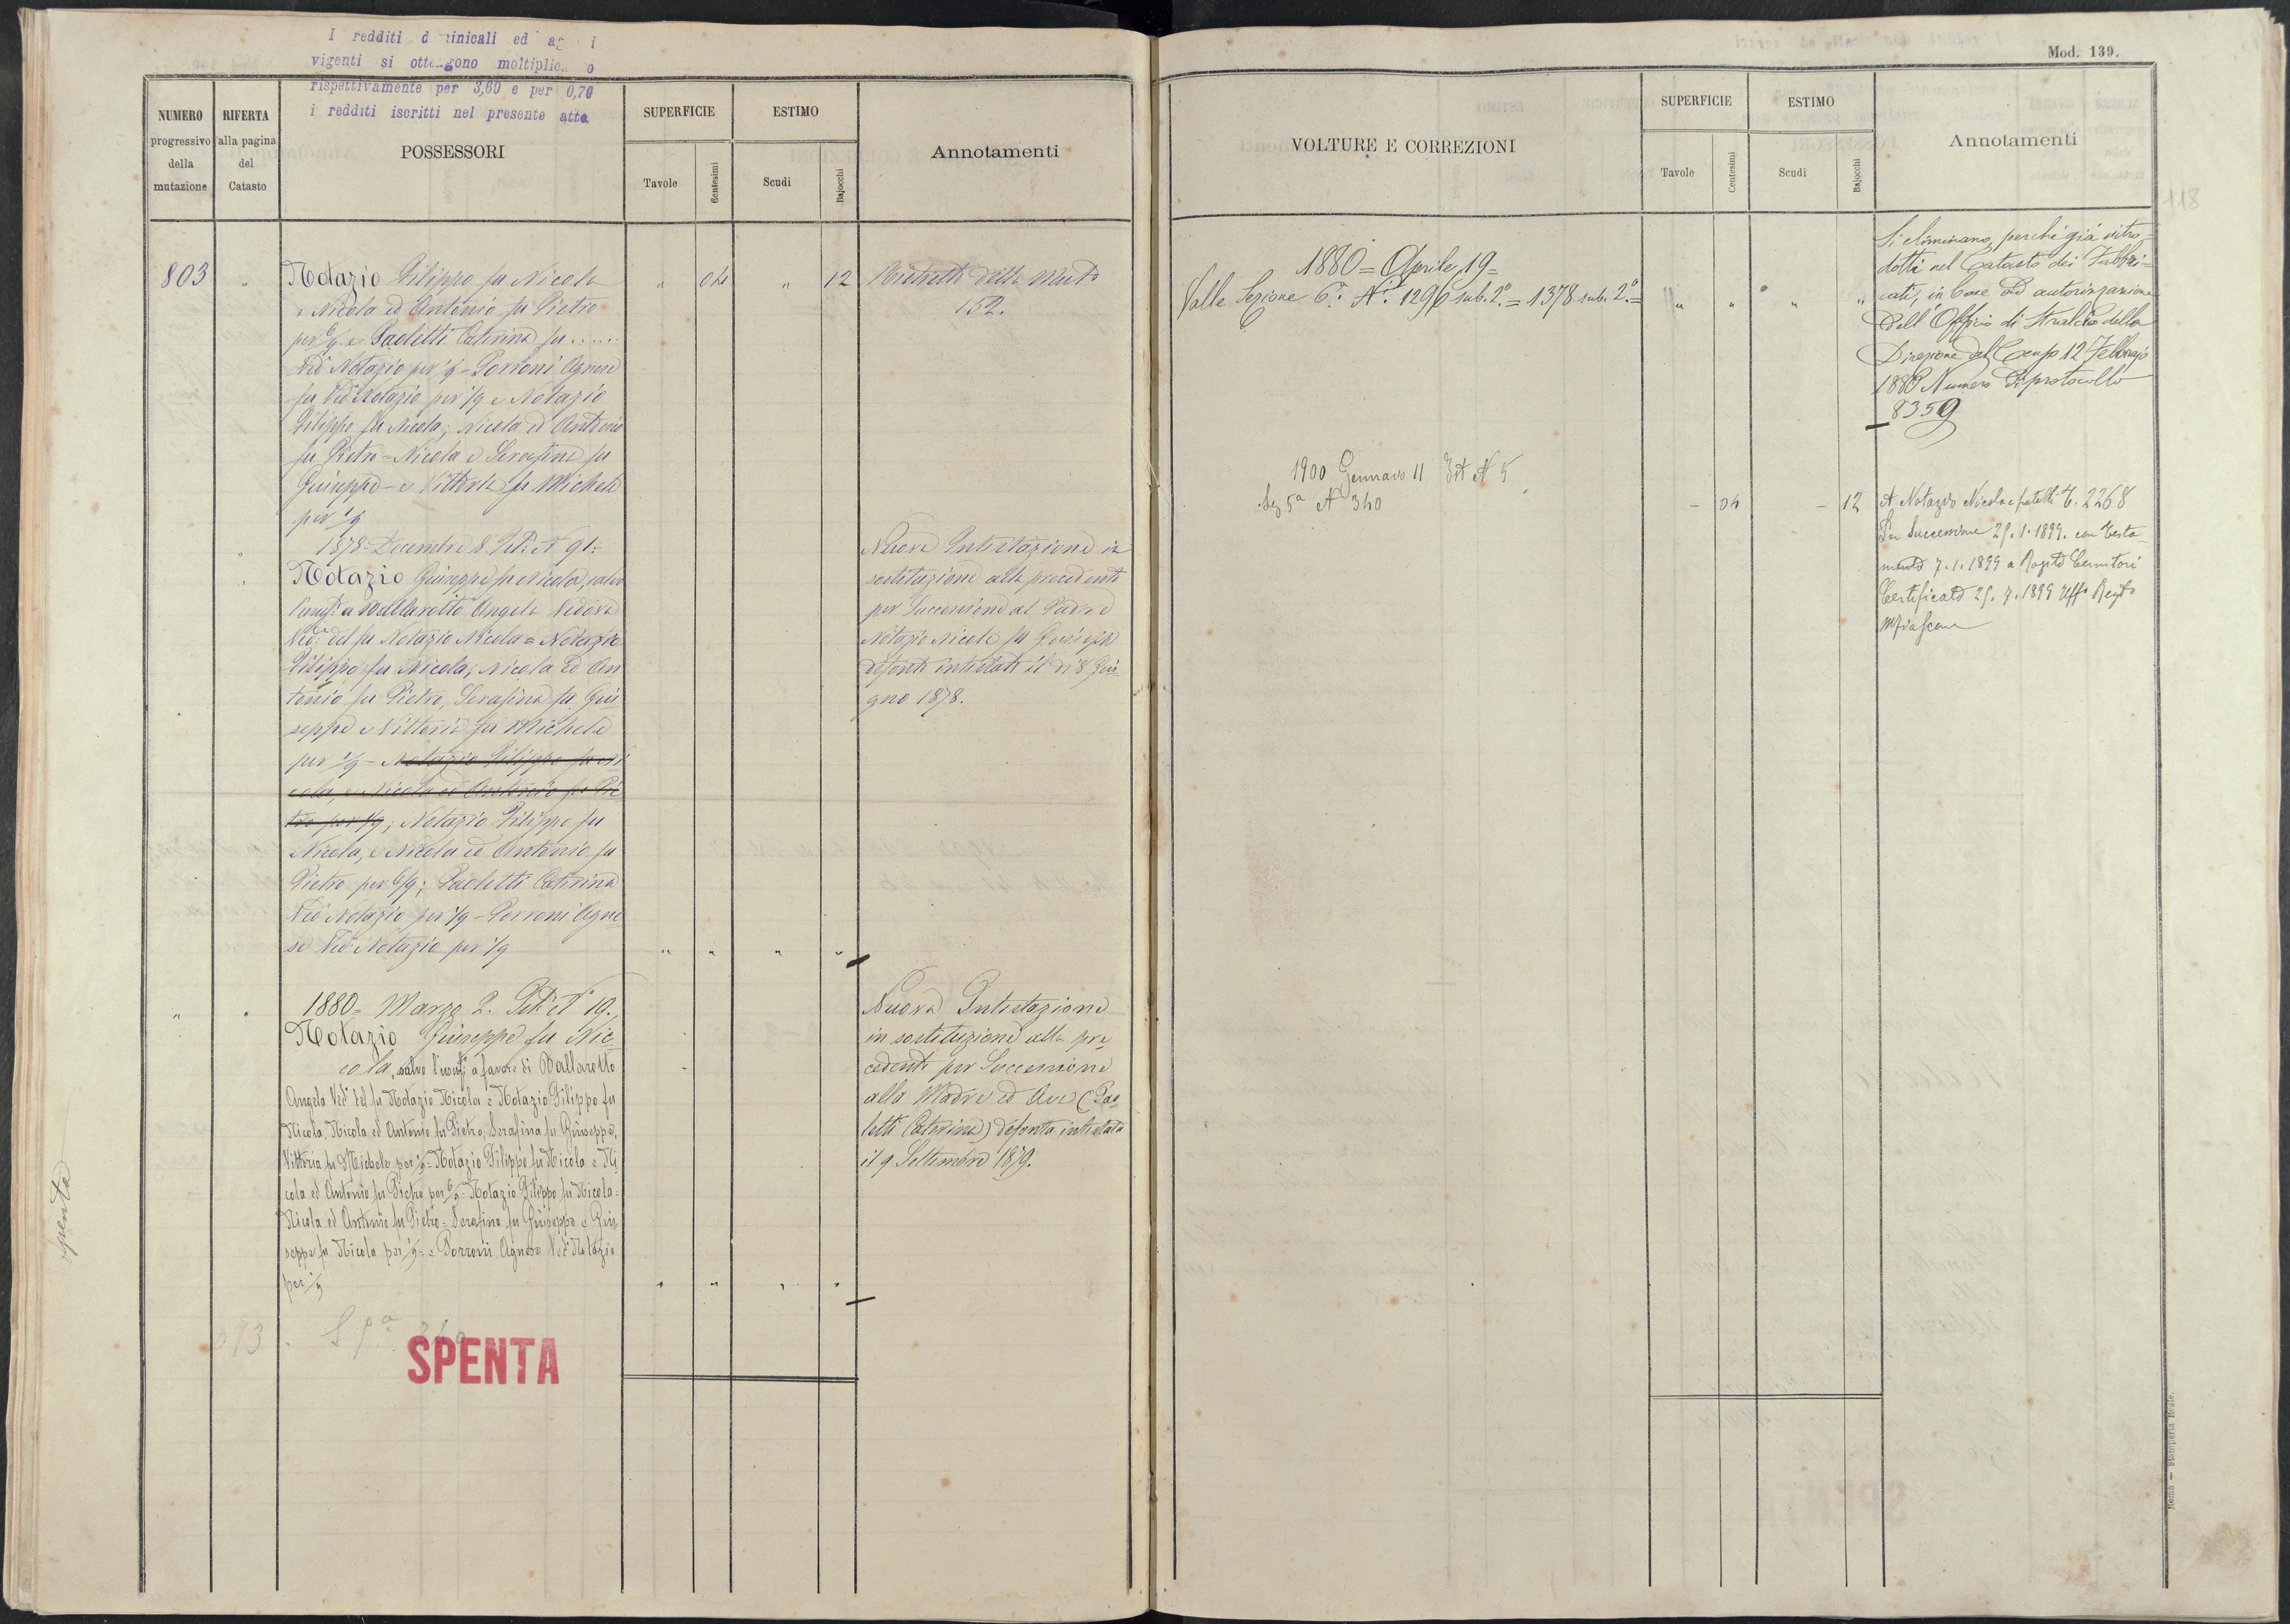 I redditi d inicali ed ag i
vigenti si ottengono moltiplica o
rispettivamente per 3,60 e per 0,70
i redditi iscritti nel presente atto.
Mod. 139.
NUMERO
progressivo
della
mutazione
RIFERTA
alla pagina
del
Catasto
POSSESSORI
SUPERFICIE
Tavole
Centesimi
ESTIMO
Scudi
Bajocchi
Annotamenti
803 " Notazio Filippo fu Nicola " 04 " 12
e Nicola ed Antonio fu Pietro
per 6/9 e Paoletti Caterina fu ......
Ved Notazio per 1/9 - Porroni Agnese
fu Ved Notazio per 1/9 e Notazio
Filippo fu Nicola, Nicola ed Antonio
fu Pietro = Nicola e Serafina fu
Giuseppe - e Vittoria fu Michele
per 1/9
152.
1878 = Decembre 8. Vol. N 91 =
Notazio Giuseppe fu Nicola, salvo
l'usuf. a Ballarotto Angela Vedova
Ved. del fu Notazio Nicola = Notazio
Filippo fu Nicola, Nicola ed An
tonio fu Pietro, Serafina fu Giu
seppe e Vittoria fu Michele
per 1/9 - Notazio Filippo fu Ni
cola, e Nicola ed Antonio fu Pie
tro per 1/9; Notazio Filippo fu
Nicola, e Nicola ed Antonio fu
Pietro per 6/9; Paoletti Caterina
Ved Notazio per 1/9 - Porroni Agne
se Ved Notazio per 1/9 " " " "
Nuova Intestazione in
sostituzione alla precedente
per Successione al Padre
Notazio Nicola fu Giuseppe
defonto intestato il dì 8 Giu
gno 1878.
" " 1880 = Marzo 2. N° 19.
Notazio Giuseppe fu Nic
cola, salvo l'usuf. a favore di Ballarotto
Angela Ved. del fu Notazio Nicola e Notazio Filippo fu
Nicola, Nicola ed Antonio fu Pietro, Serafina fu Giuseppe,
Vittoria fu Michele per 1/9 = Notazio Filippo fu Nicola e Ni
cola ed Antonio fu Pietro per 6/9 = Notazio Filippo fu Nicola =
Nicola ed Antonio fu Pietro = Serafina fu Giuseppe e Giu
seppe fu Nicola per 1/9 = e Porroni Agnese Ved. Notazio
per 1/9 " " " "
Nuova Intestazione
in sostituzione alla pre
cedente per Successione
alla Madre ed Ava (Pao
letti Caterina) defonta intestata
il 9 Settembre 1879.
spenta
SPENTA
VOLTURE E CORREZIONI
SUPERFICIE
Tavole
Centesimi
ESTIMO
Scudi
Bajocchi
Annotamenti
1880 = Aprile 19 =
Valle Sezione 6.ª N.i 1296 sub. 2.° = 1378 sub. 2.° = " " " "
Si eliminano, perchè già intro
dotti nel Catasto dei Fabbri=
cati, in base ad autorizzazione
dell'Officio di Stralcio della
Direzione del Censo 12 Febbrajo
1880 Numero di protocollo
8359
1900 Gennaro 11 N 5
Sez 5ª N 340 - 04 - 12
A Notazio Nicola e fratelli 2268
Per Successione 29.1.1899. con testa
mento 7.1.1899 a Rogito
Certificato 29.7.1899 Uffo Regto
Roma — Stamperia Reale.